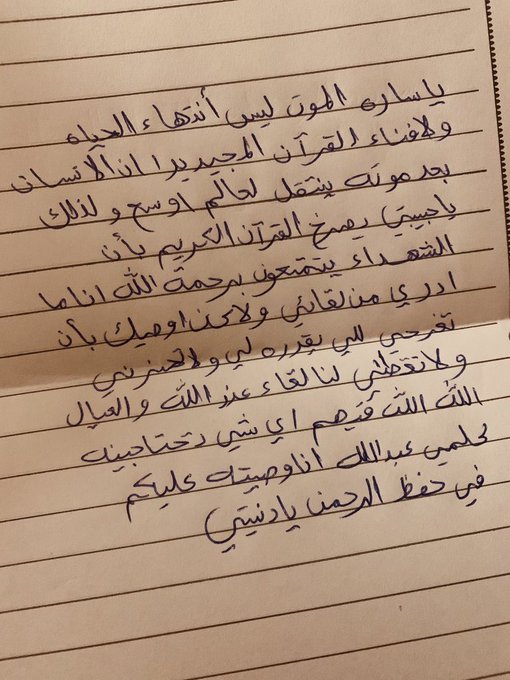 يا ساره الموت ليس أنتهاء الحياه
ولا فناء القرآن المجيد يرا ان الانسان
بعد موته ينتقل لعالم اوسع و لذلك
يا حبيبتي يصرخ القرآن الكريم بأن
الشهداء يتمتعون برحمة الله انا ما
ادري من لقائي ولاكن اوصيك بأن
تفرحي للي يقدره لي ولا تحزني
ولا تغطني لنا لقاء عند الله و العيال
الله الله فيهم اي شي تحتاجينه
كلمي عبدالله انا وصيته عليكم
في حفظ الرحمن يا دنيتي